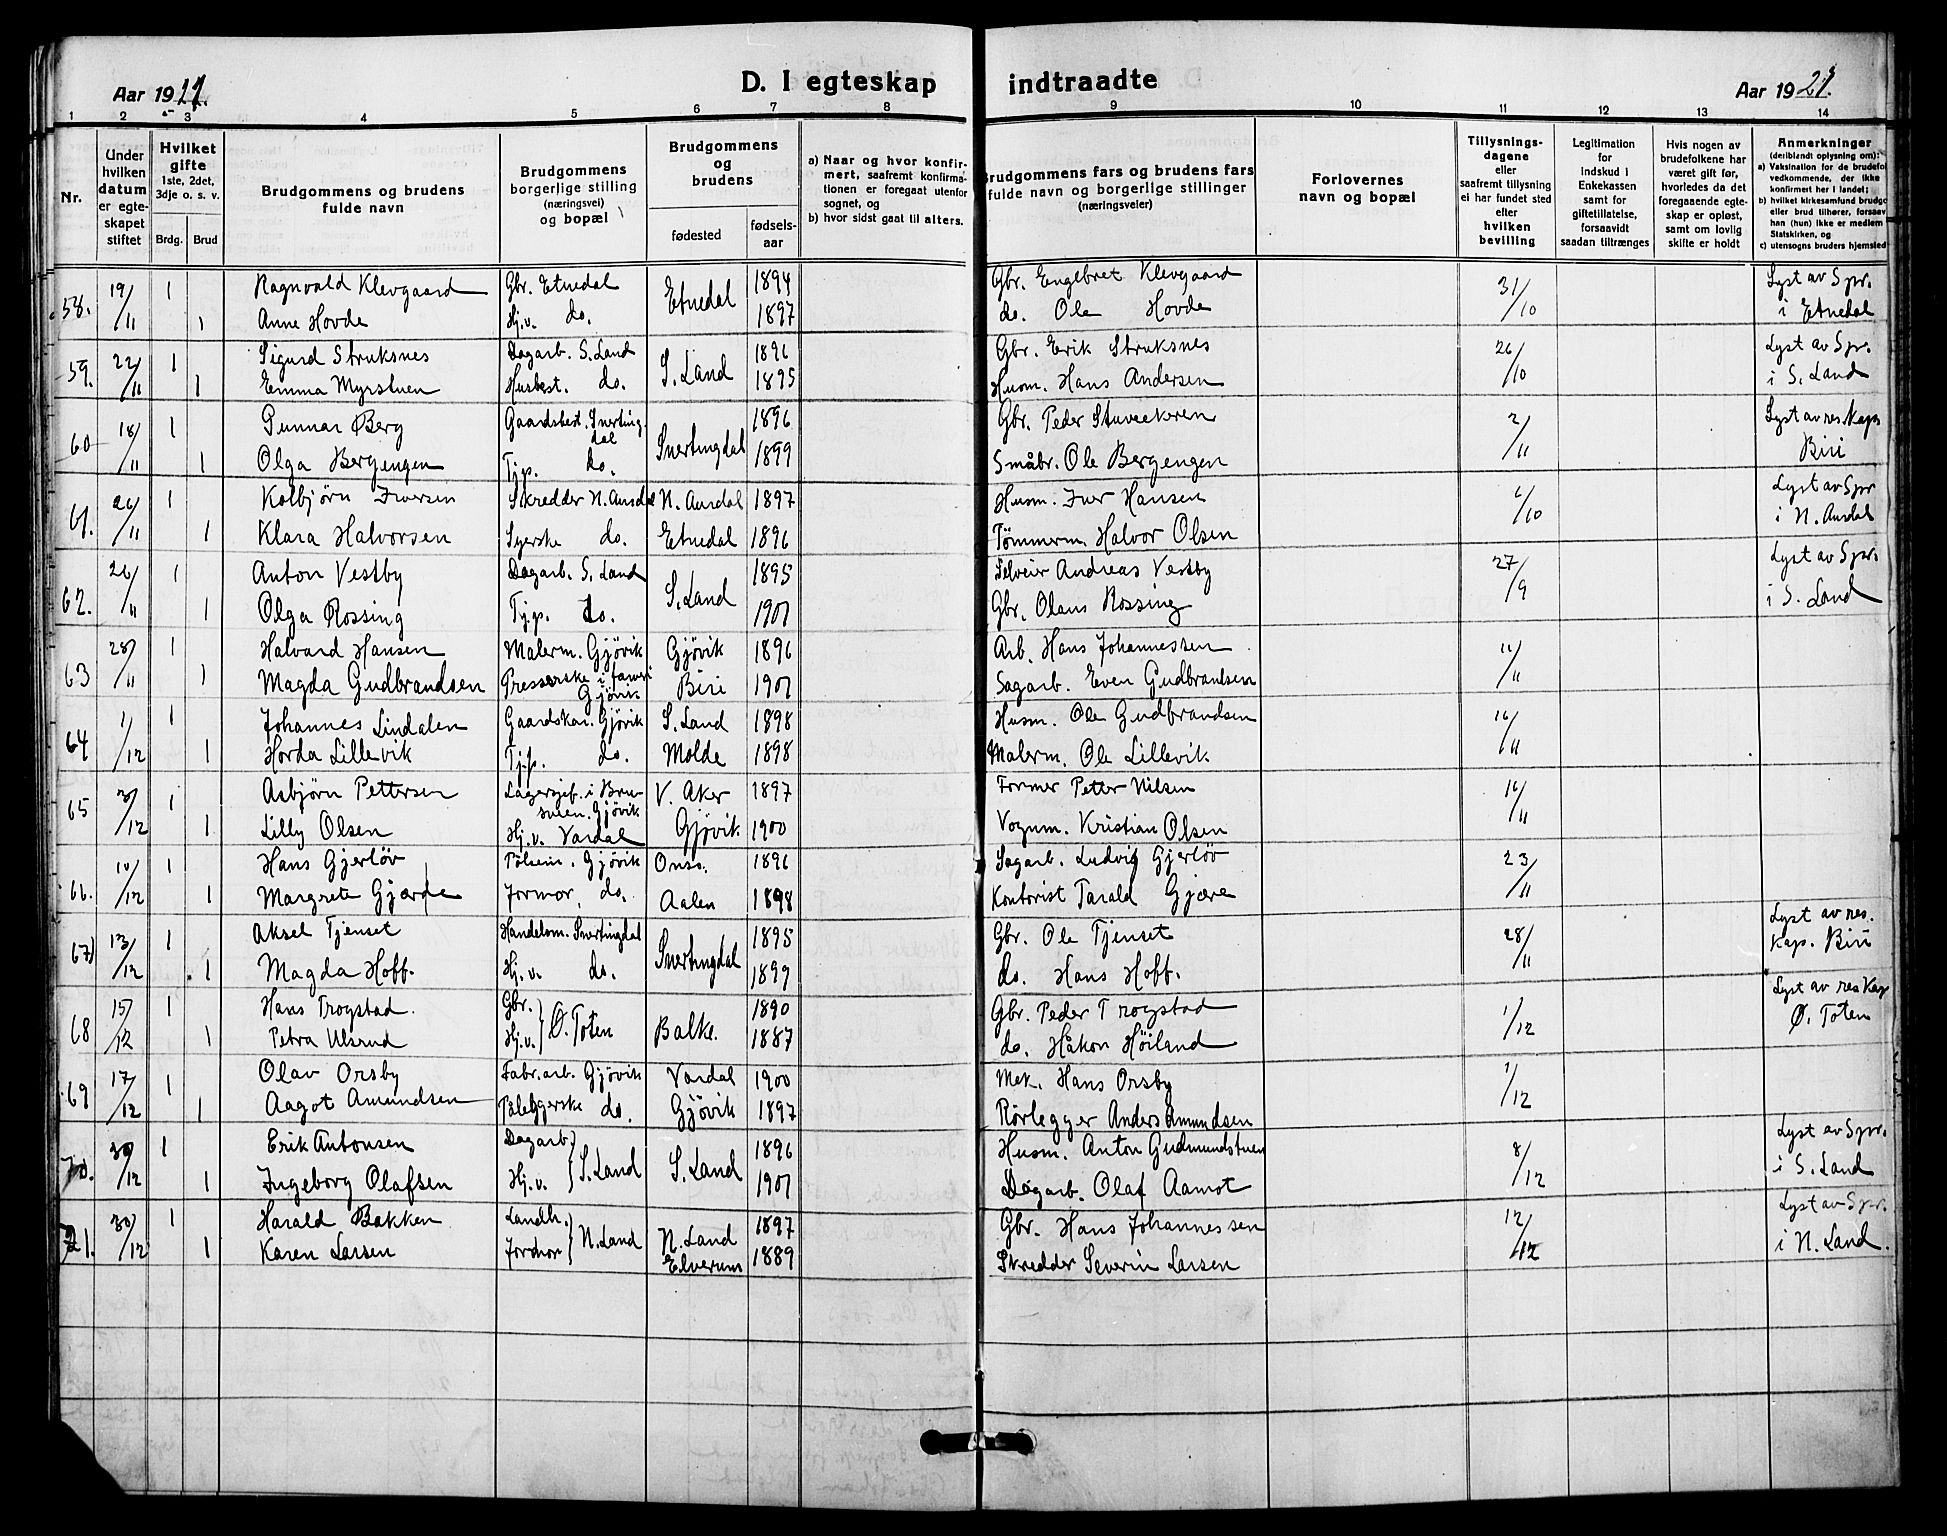 D. I egteskap indtraadte
Aar 1921.
Aar 1921.
1 2 3 4 5 6 7 8 9 10 11 12 13 14
Nr.
Under hvilken datum er egteskapet stiftet
Hvilket gifte 1ste, 2det, 3dje o. s. v.
Brdg. Brud
Brudgommens og brudens fulde navn
Brudgommens borgerlige stilling (næringsvei) og bopæl
Brudgommens og brudens
fødested
fødsels-aar
a) Naar og hvor konfirmert, saafremt konfirmationen er foregaat utenfor sognet, og
b) hvor sidst gaat til alters.
Brudgommens fars og brudens fars fulde navn og borgerlige stillinger (næringsveier)
Forlovernes navn og bopæl
Tillysningsdagene eller saafremt tillysning ei har fundet sted efter hvilken bevilling
Legitimation for indskud i Enkekassen samt for giftetillatelse, forsaavidt saadan tiltrænges
Hvis nogen av brudefolkene har været gift før, hvorledes da det foregaaende egteskap er opløst, samt om lovlig skifte er holdt
Anmerkninger
(deriblandt oplysning om):
a) Vaksination for de brudefol
vedkommende, der ikke
konfirmert her i landet;
b) hvilket kirkesamfund brudgo
eller brud tilhører, forsaav
han (hun) ikke er medlem
Statskirken, og
c) utensogns bruders hjemsted
58. 19/11 1 Ragnvald Klevgaard Gbr. Etnedal Etnedal 1894 Gbr. Engelbret Klevgaard 31/10 Lyst av Spr.
1 Anne Hovde Hj.v. do. 1897 do. Ole Hovde i Etnedal
59. 22/11 1 Sigurd Struksnes Dagarb. S. Land S. Land 1896 Gbr. Erik Struksnes 26/10 Lyst av Spr.
1 Emma Myrstuen Husbest. do. 1895 Husm. Hans Andersen i S. Land
60 18/11 1 Gunnar Berg Gaardsbest. Snertingdal Snertingdal 1896 Gbr. Peder 2/11 Lyst av res. Kap
1 Olga Bergengen Tjp. do. 1899 Småbr. Ole Bergengen Biri
61. 26/11 1 Kolbjørn Iversen Skredder N. Aurdal N. Aurdal 1897 Husm. Iver Hansen /10 Lyst av Spr
1 Klara Halvorsen Syerske do. Etnedal 1896 Tømmerm. Halvor Olsen i N. Aurdal
62. 26/11 1 Anton Vestby Dagarb. S. Land S. Land 1895 Selveier Andreas Vestby 27/9 Lyst av Spr.
1 Olga Rossing Tj.p. do. 1901 Gbr. Olaus Rossing i S. Land
63 28/11 1 Halvard Hansen Malerm. Gjøvik Gjøvik 1896 Arb. Hans Johannessen 11/11
1 Magda Gudbrandsen Presserske i farveri Gjøvik Biri 1901 Sagarb. Even Gudbrandsen
64 1/12 1 Johannes Lindalen Gaardskar. Gjøvik S. Land 1898 Husm. Ole Gudbrandsen 16/11
1 Horda Lillevik Tj.p. do. Molde 1898 Malerm. Ole Lillevik
65 3/12 1 Asbjørn Pettersen Lagersjef. i Brusveen. Gjøvik V. Aker 1897 Former Petter Nilsen 16/11
1 Lilly Olsen Hj.v. Vardal Gjøvik 1900 Vognm. Kristian Olsen
66. 10/12 1 Hans Gjerløv Pølsem. Gjøvik Onsø. 1896 Sagarb. Ludvig Gjerløv 23/11
1 Margrete Gjærde Jormor, do. Aalen 1898 Kontorist Tarald Gjære
67) 13/12 1 Aksel Tjenset Handelsm. Snertingdal Snertingdal 1895 Gbr. Ole Tjenset 28/11 Lyst av res.
1 Magda Hoff. Hj.v. do. 1899 do. Hans Hoff. Kap. Biri
68 15/12 1 Hans Trogstad. Gbr. Ø. Toten Balke. 1890 Gbr. Peder Trogstad 1/12 Lyst av res Kap
1 Petra Ulsrud Hj.v. 1887 do. Håkon Høiland Ø. Toten
69 17/12 1 Olav Orsby Fabr.arb. Gjøvik Vardal 1900 Mek. Hans Orsby 1/12
1 Aagot Amundsen Pålæggerske do. Gjøvik 1897 Rørlegger Anders Amundsen
70. 30/12 1 Erik Antonsen Dagarb S. Land S. Land 1896 Husm. Anton Gudmundstuen 8/12 Lyst av Spr.
1 Ingeborg Olafsen Hj.v. 1901 Dagarb. Olaf Aamot i S. Land
71. 30/12 1 Harald Bakken Landh. N. Land N. Land 1897 Gbr. Hans Johannessen 12/12 Lyst av Spr.
1 Karen Larsen Jordmor Elverum 1889 Skredder Severin Larsen i N. Land.